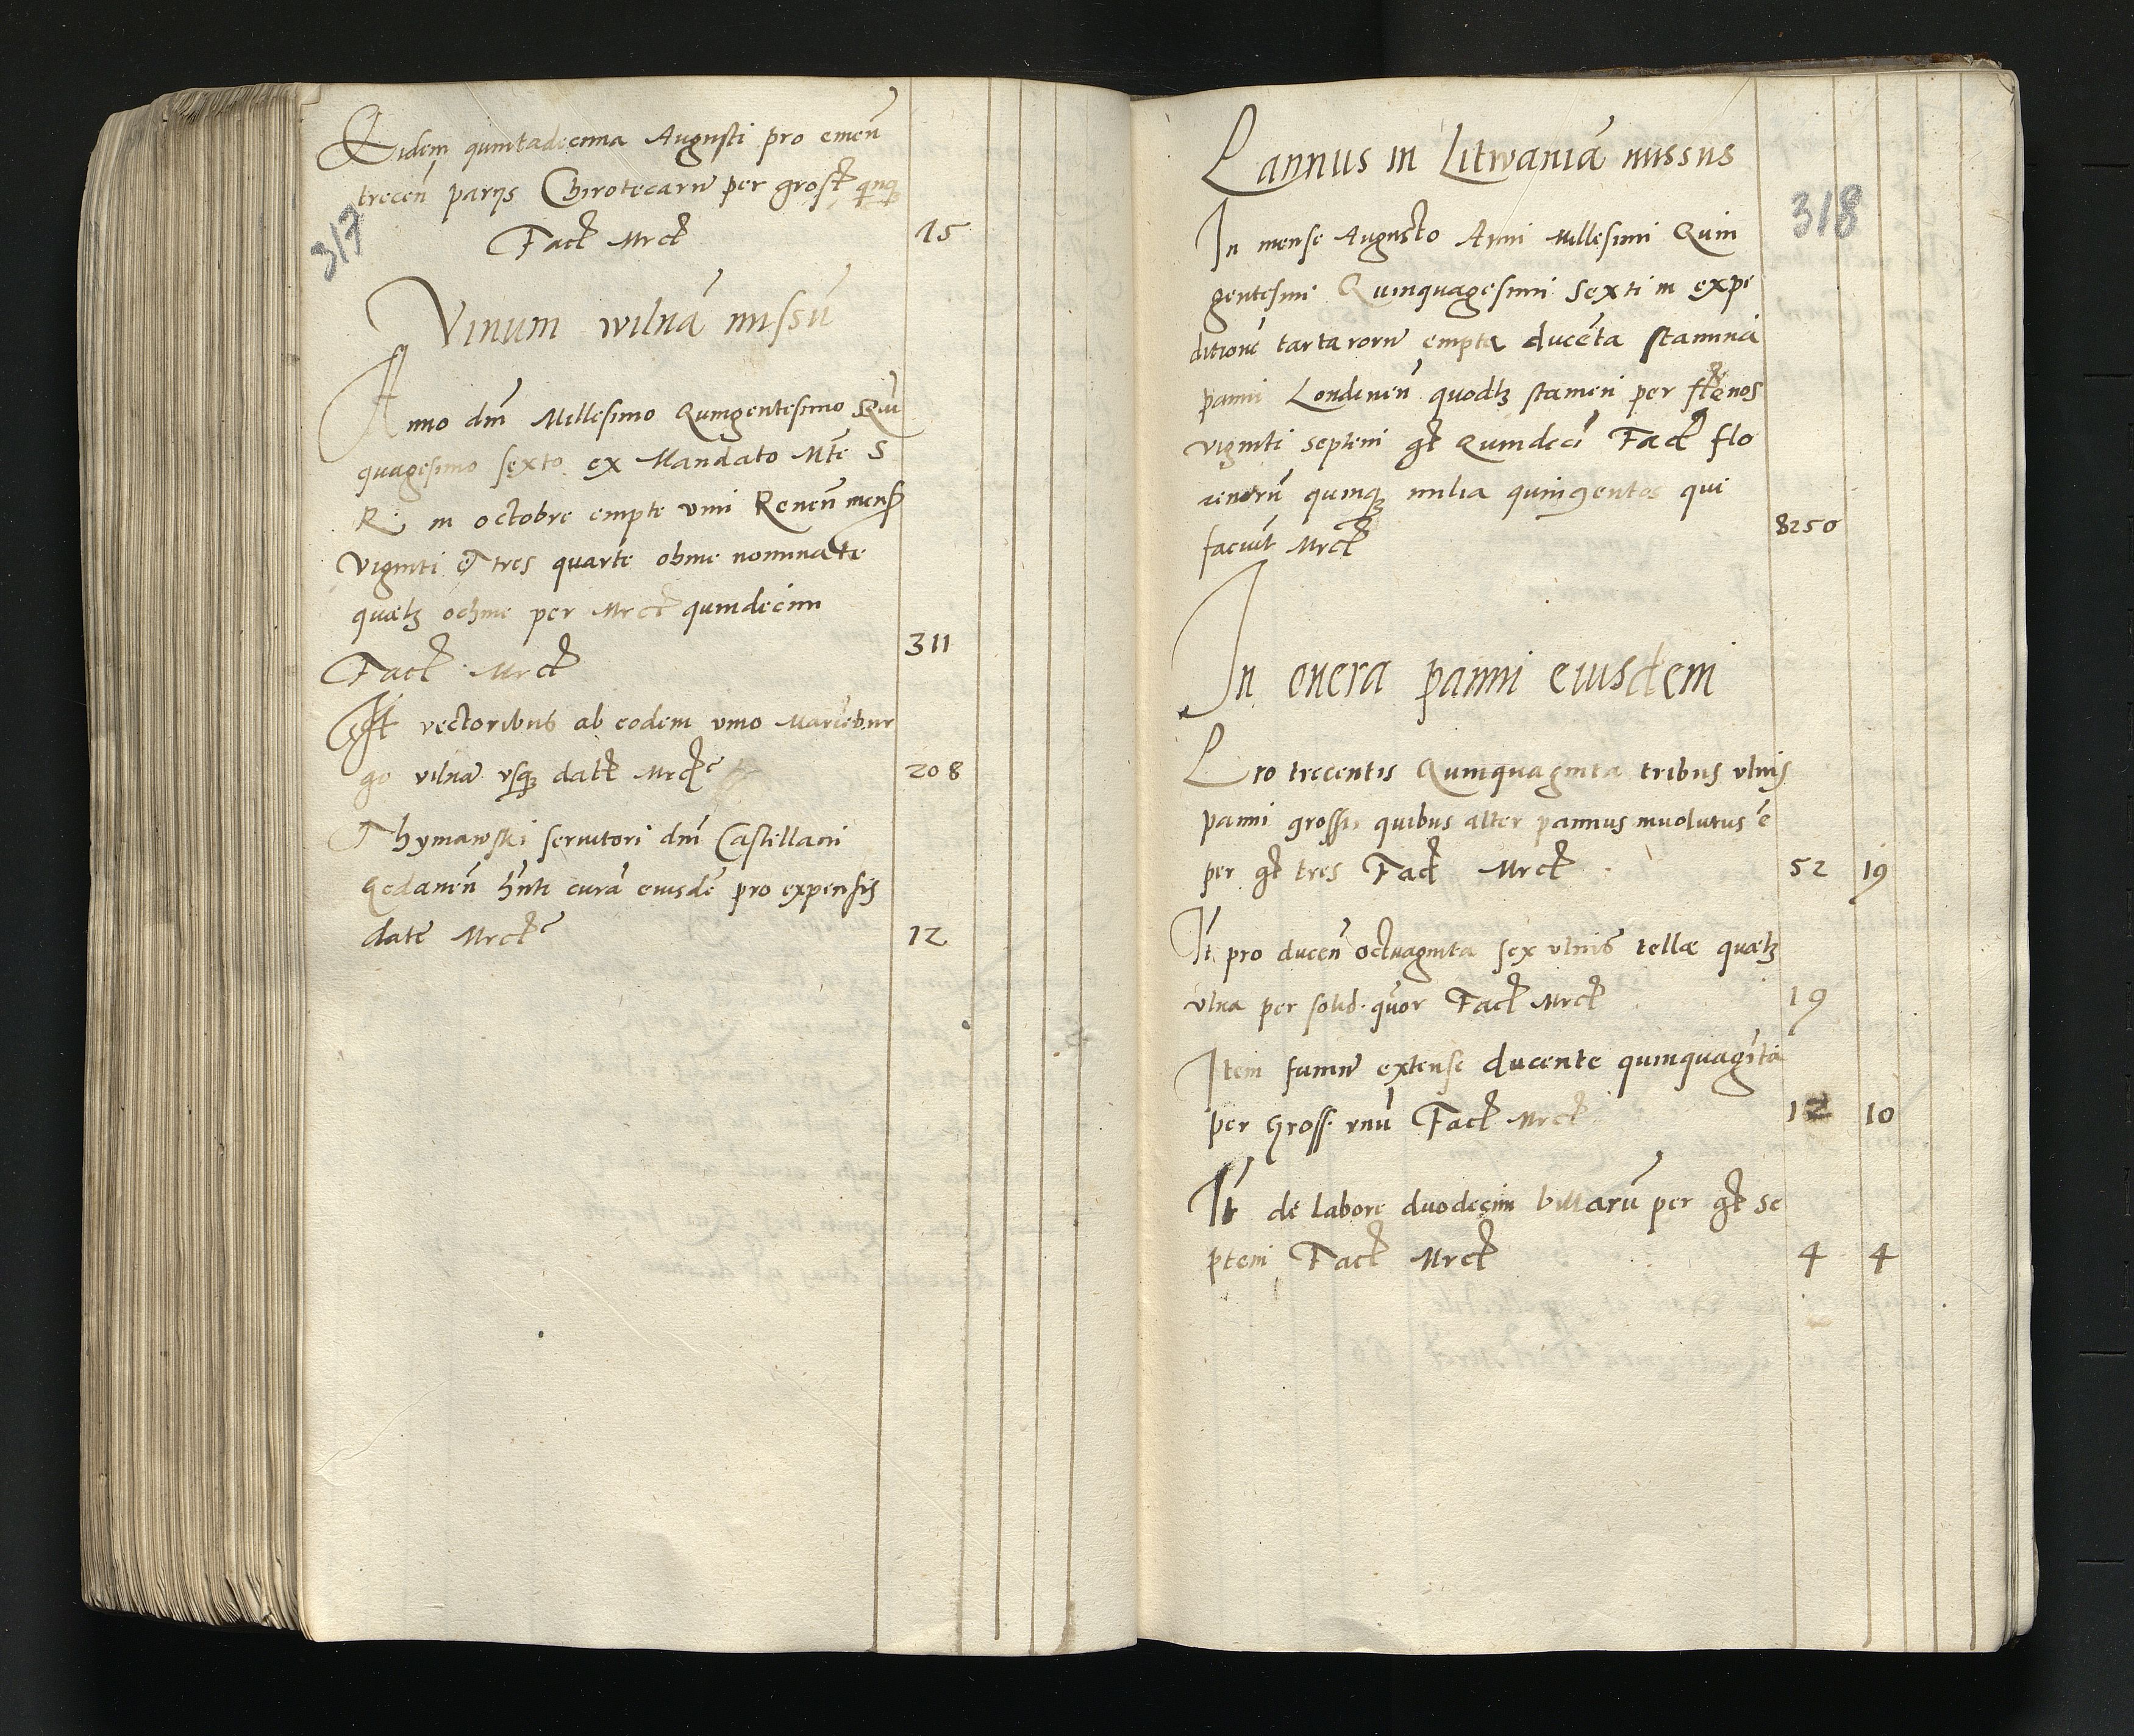 Eidem quintadecima Augusti pro emen̄
trecen̄ parÿs Chirotecarū per gross quinq
317
Fact Mrct 15
Vinum wilnā missū
Anno dn̄i Millesimo Quingentesimo Quin
quagesimo sexto ex Mandato Mte S
R in octobre empte vini Renen̄ mens
viginti et tres quarte ohme nominate
quælꝫ ochme per Mrct quindecim
311
Fact Mrct
It vectoribus ab eodem vino Mariebur
go vilnā vsqꝫ datt Mrcte 208
Thymawski seruitori dn̄i Castellani
Gedanen̄ hn̄ti curā eiusdē pro expensis
date Mrcte 12
Pannus in Litwaniā missus
318
In mense Augusto Anni Millesimi Quin
gentesimi Quinquagesimi Sexti in expe
ditionē tartarorū empta ducēta stamina
panni Londinen̄ quodlꝫ stamen per flrenos
viginti septem gt Quindecī Fact flo
renorū quinqꝫ milia quingentos qui
faciūt Mrct 8250
In onera panni eiusdem
Pro trecentis Quinquaginta tribus vlnis
panni grossi, quibus alter pannus inuolutus ē
per gt tres Fact Mrct 52 19
It pro ducen̄ octuaginta sex vlnis tellæ quælꝫ
vlna per solid. quor Fact Mrct 19
Item funiū extense ducente quinquagīta
per Gross. vnū Fact Mrct 12 10
It de labore duodecim billarū per gt se
ptem Fact Mrct 4 4